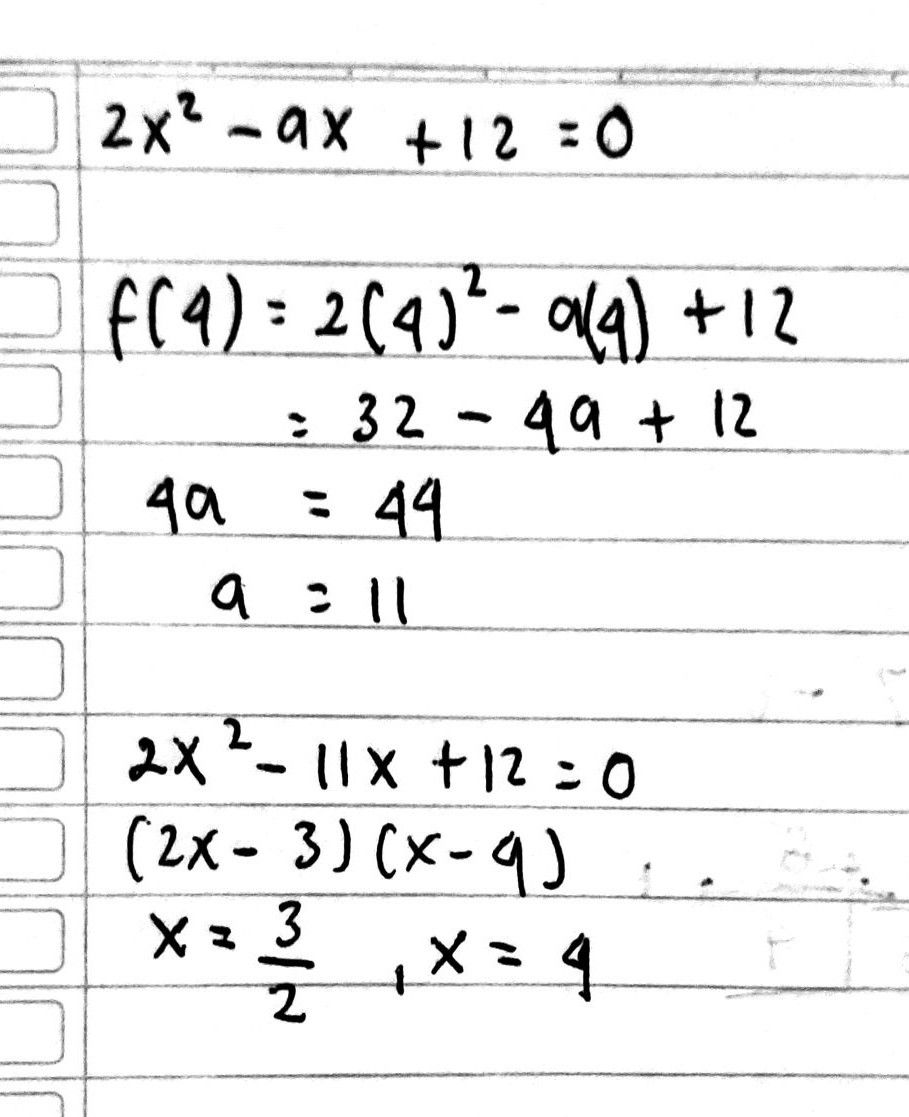 2x² - ax + 12 = 0
f(4) = 2(4)² - a(4) + 12
= 32 - 4a + 12
4a = 44
a = 11
2x² - 11x + 12 = 0
(2x - 3) (x - 4)
x = 3/2 , x = 4